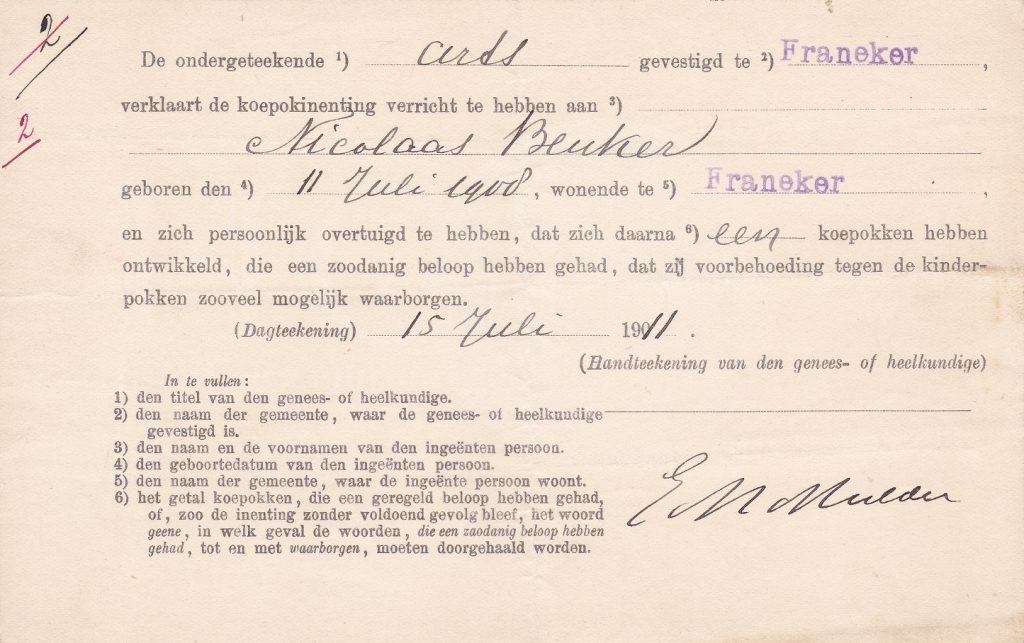 2
2
De ondergeteekende ¹) arts gevestigd te ²) Franeker ,
verklaart de koepokinenting verricht te hebben aan ³)
Nicolaas Beuker
geboren den ⁴) 11 Juli 1908 , wonende te ⁵) Franeker ,
en zich persoonlijk overtuigd te hebben, dat zich daarna ⁶) een koepokken hebben
ontwikkeld, die een zoodanig beloop hebben gehad, dat zij voorbehoeding tegen de kinder-
pokken zooveel mogelijk waarborgen.
(Dagteekening) 15 Juli 1911 .
(Handteekening van den genees- of heelkundige)
In te vullen:
1) den titel van den genees- of heelkundige.
2) den naam der gemeente, waar de genees- of heelkundige
gevestigd is.
3) den naam en de voornamen van den ingeënten persoon.
4) den geboortedatum van den ingeënten persoon.
5) den naam der gemeente, waar de ingeënte persoon woont.
6) het getal koepokken, die een geregeld beloop hebben gehad,
of, zoo de inenting zonder voldoend gevolg bleef, het woord
geene, in welk geval de woorden, die een zaodanig beloop hebben
gehad, tot en met waarborgen, moeten doorgehaald worden.
E M Mulder